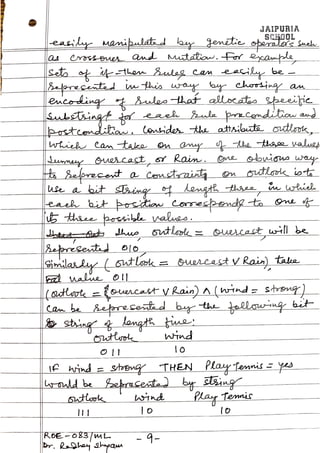 JAIPURIA
SCHOOL
easily manipulated by genetic operators such
as crossover and mutation. For example,
sets of if-then rules can easily be
represented in this way by choosing an
encoding of rules that allocates specific
substrings for each rule precondition and
postcondition. Consider the attribute outlook,
which can take on any of the three values
Sunney overcast, or Rain. One obvious way
to represent a constraint on outlook is to
use a bit string of length three, in which
each bit position corresponds to one of
its three possible values.
thus outlook = overcast, will be
Represented 010.
Similarly (outlook = overcast V Rain) take
value 011
(outlook = {overcast V Rain) ∧ (wind = strong)
can be represented by the following bit
string of length five:
outlook wind
011 10
IF wind = strong THEN Play Tennis = yes
would be represented by string
outlook wind Play Tennis
111 10 10
ROE-083/ML -9-
Dr. Raghav Shyam